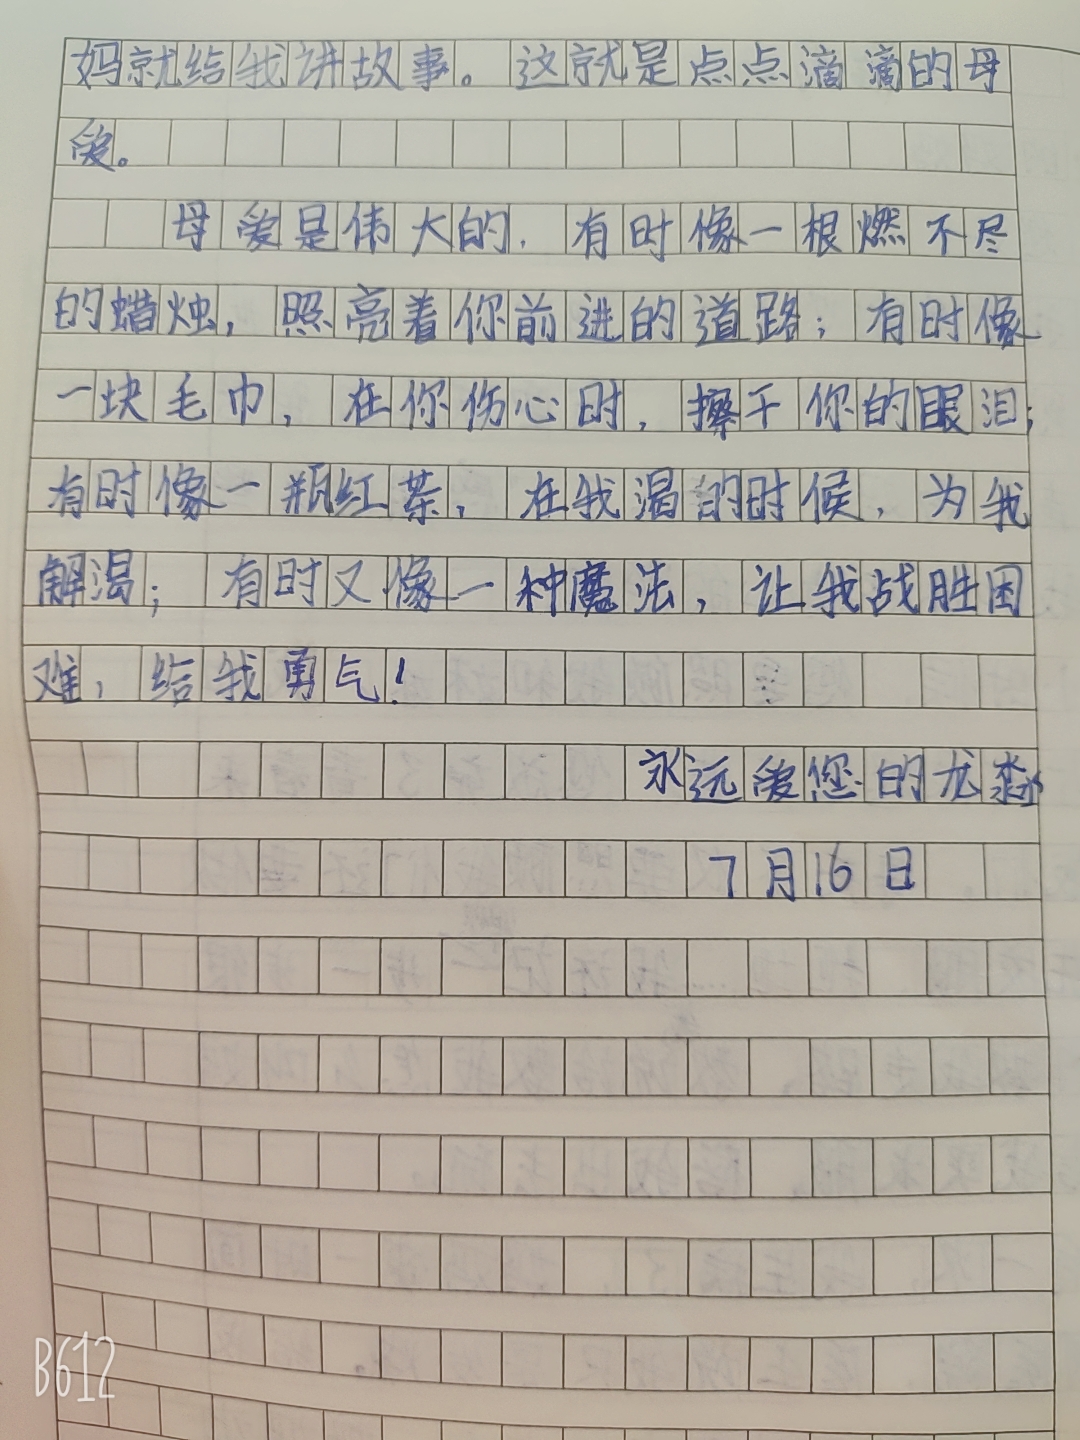 妈就给我讲故事。这就是点点滴滴的母
爱。
母爱是伟大的，有时像一根燃不尽
的蜡烛，照亮着你前进的道路；有时像
一块毛巾，在你伤心时，擦干你的眼泪；
有时像一瓶红茶，在我渴的时候，为我
解渴；有时又像一种魔法，让我战胜困
难，给我勇气！
永远爱您的龙淼
7月16日
B612